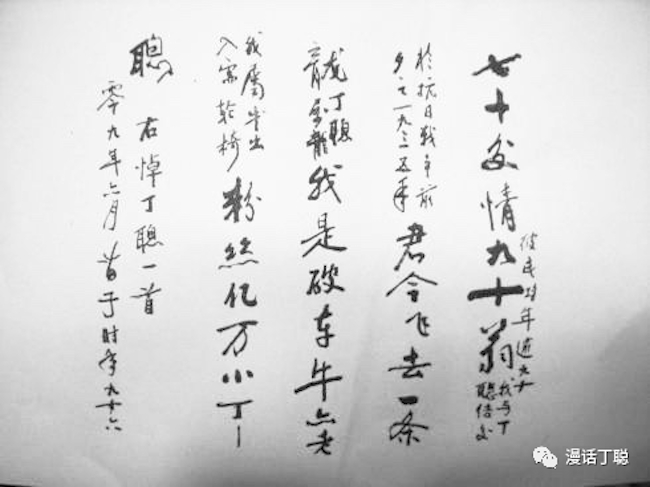 七十交情九十翁
年近九十
我与丁
聪结交
於抗日战争前
夕之一九三五年
君今飞去一条
龙
丁聪
属龍
我是破车牛亦老
我属牛出
入需轮椅
粉丝亿万小丁
聪
右悼丁聪一首
零九年六月苗子时年九十六
漫话丁聪